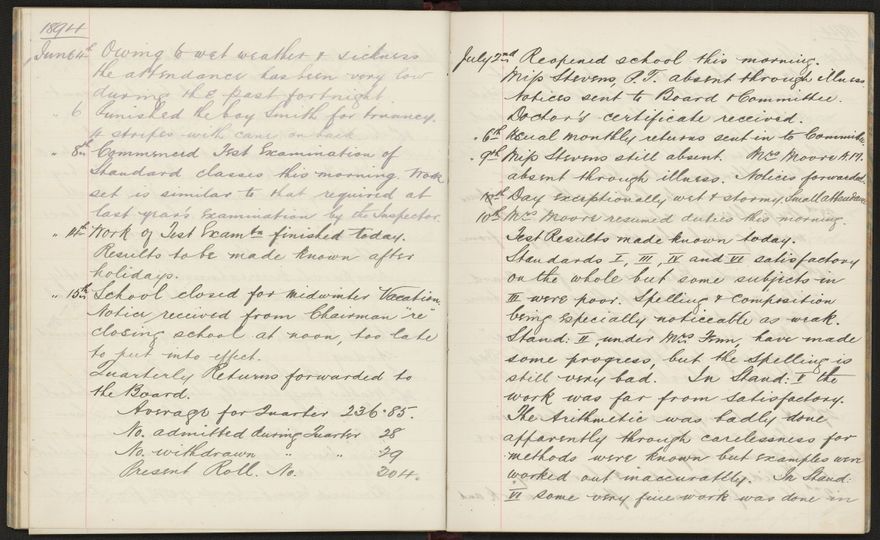 1894
June 4th Owing to wet weather & sickness
the attendance has been very low
during the past fortnight
" 6 Punished the boy Smith for truancy.
4 stripes with cane on back
" 8th Commenced Test Examination of
Standard classes this morning. Work
set is similar to that required at
last year's Examination by the Inspector.
" 14th Work of Test Examtn finished today.
Results to be made known after
holidays.
" 15th School closed for Midwinter Vacation.
Notice received from Chairman "re"
closing school at noon, too late
to put into effect.
Quarterly Returns forwarded to
the Board.
Average for Quarter 236.85.
No. admitted during Quarter 28
No. withdrawn " " 29
Present Roll. No. 304.
July 2nd Reopened school this morning.
Miss Stevens, P.T. absent through illness
Notices sent to Board & Committee.
Doctor's certificate received.
" 6th Usual monthly returns sent in to Committee.
" 9th Miss Stevens still absent. Mrs Moore
absent through illness. Notices forwarded.
10th Day exceptionally wet & stormy. Small attendance
10th Mrs Moore resumed duties this morning.
Test Results made known today.
Standards I, III, IV and VI satisfactory
on the whole but some subjects in
III were poor. Spelling & Composition
being especially noticeable as weak.
Stand: II, under Mrs Fenn, have made
some progress, but the spelling is
still very bad. In Stand: V the
work was far from satisfactory.
The Arithmetic was badly done
apparently through carelessness for
methods were known but examples were
worked out inaccurately. In Stand:
VI some very fine work was done in